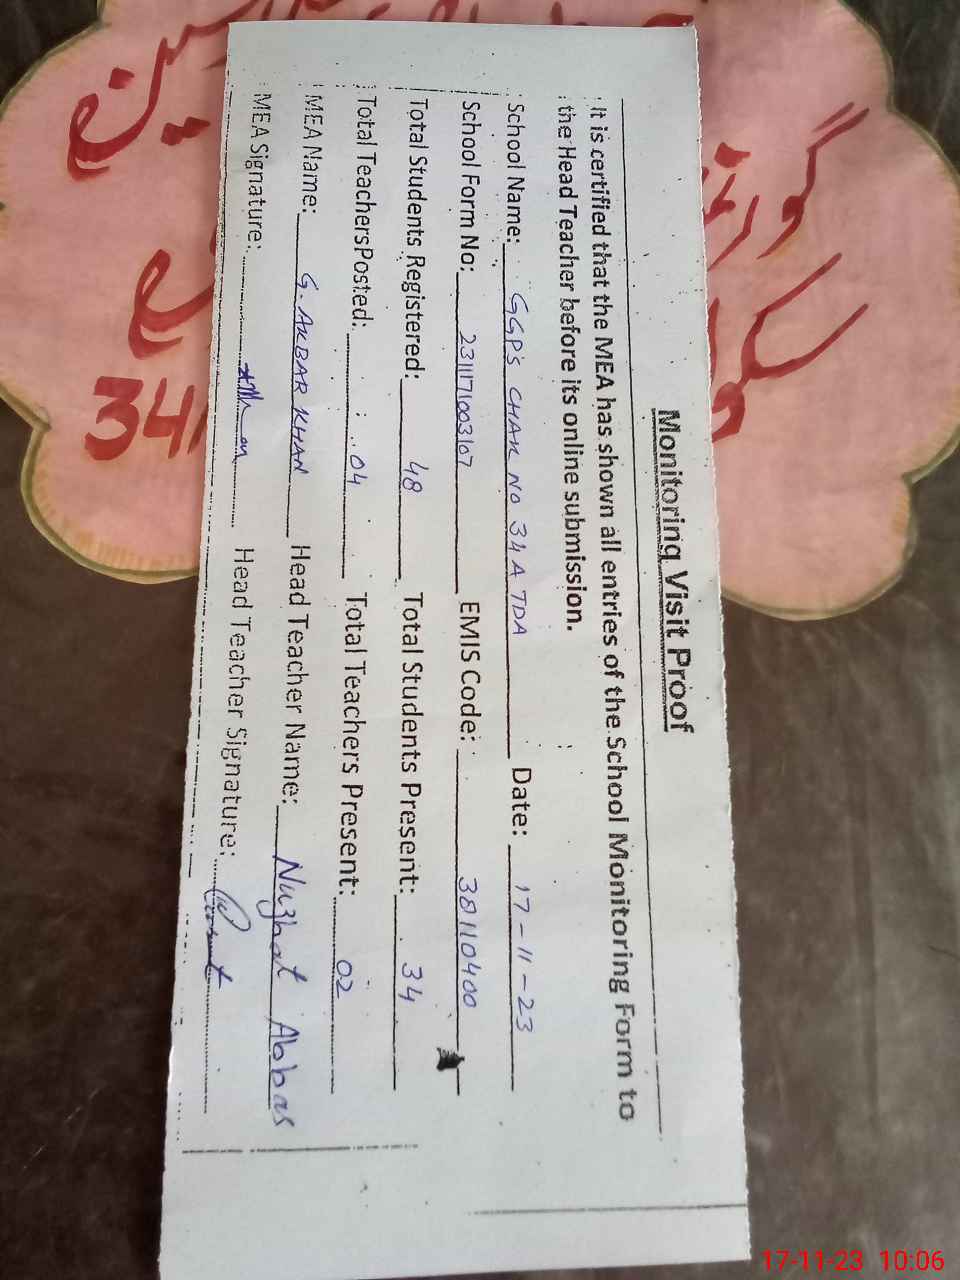 Monitoring Visit Proof
It is certified that the MEA has shown all entries of the School Monitoring Form to
the Head Teacher before its online submission.
School Name: GGPS CHAK NO 34 A TDA Date: 17-11-23
School Form No: EMIS Code: 38110400
Total Students Registered: 48 Total Students Present: 34
Total TeachersPosted: 04 Total Teachers Present: 02
MEA Name: G. AKBAR KHAN Head Teacher Name: Nuzhat Abbas
MEA Signature: Head Teacher Signature:
34
17-11-23 10:06